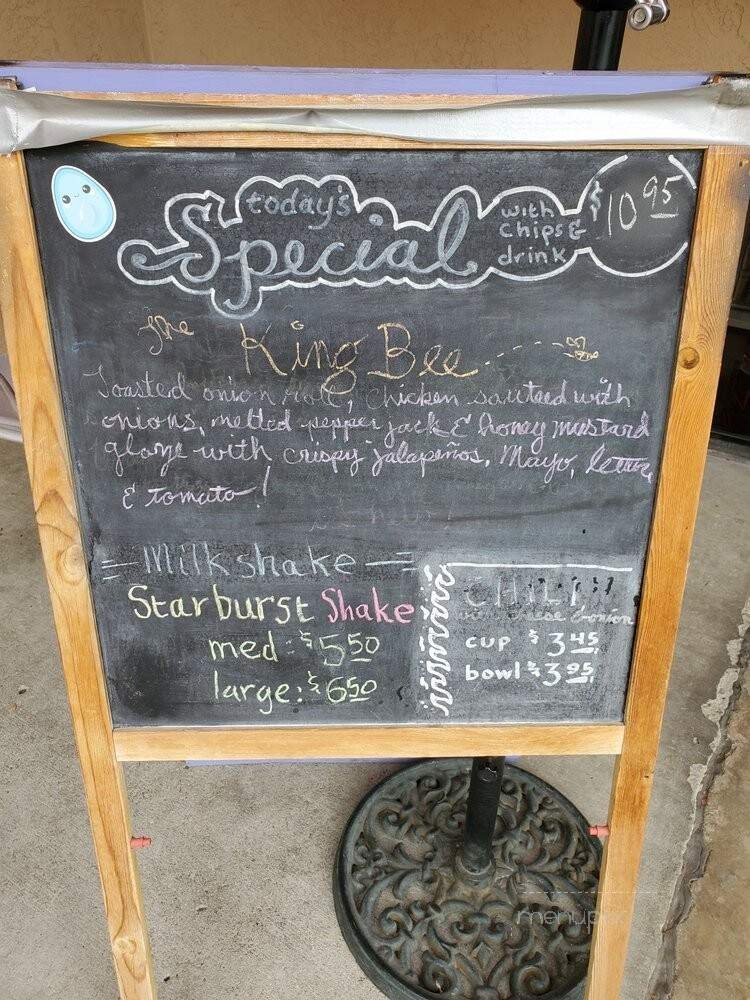 today's
Special
with
chips &
drink
$10 95
The
King Bee
Toasted onion roll, chicken sauteed with
onions, melted pepper jack & honey mustard
glaze with crispy jalapeños, Mayo,
& tomato!
Milkshake
Starburst Shake
med: $5 50
large: $6 50
CHILI
cheese & onion
cup $3 45
bowl $3 95